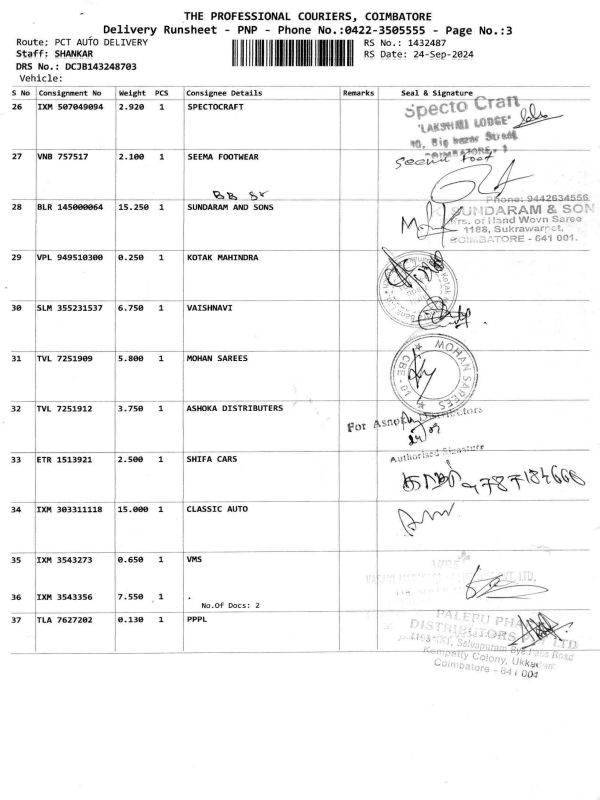 THE PROFESSIONAL COURIERS, COIMBATORE
Delivery Runsheet - PNP - Phone No.:0422-3505555 - Page No.:3
Route: PCT AUTO DELIVERY RS No.: 1432487
Staff: SHANKAR RS Date: 24-Sep-2024
DRS No.: DCJB143248703
Vehicle:
S No Consignment No Weight PCS Consignee Details Remarks Seal & Signature
26 IXM 507049094 2.920 1 SPECTOCRAFT
Specto Craft
'LAKSHMI LODGE'
COIMBATORE - 1
27 VNB 757517 2.100 1 SEEMA FOOTWEAR
Seema Foot
BB St
Phone: 9442634556
28 BLR 145000064 15.250 1 SUNDARAM AND SONS
SUNDARAM & SON
Mrs. of Hand Wovn Saree
1188, Sukrawarpet,
COIMBATORE - 641 001.
29 VPL 949510300 0.250 1 KOTAK MAHINDRA
30 SLM 355231537 6.750 1 VAISHNAVI
31 TVL 7251909 5.800 1 MOHAN SAREES
MOHAN SAREES
CBE - 10
32 TVL 7251912 3.750 1 ASHOKA DISTRIBUTERS
For Ashoka Distributors
Authorised Signature
33 ETR 1513921 2.500 1 SHIFA CARS
34 IXM 303311118 15.000 1 CLASSIC AUTO
35 IXM 3543273 0.650 1 VMS
36 IXM 3543356 7.550 1 .
No.Of Docs: 2
37 TLA 7627202 0.130 1 PPPL
PALEPU PHA
DISTRIBUTORS LTD
Selvapuram Bye Pass Road
Kempatty Colony, Ukkadam
Coimbatore - 641 001